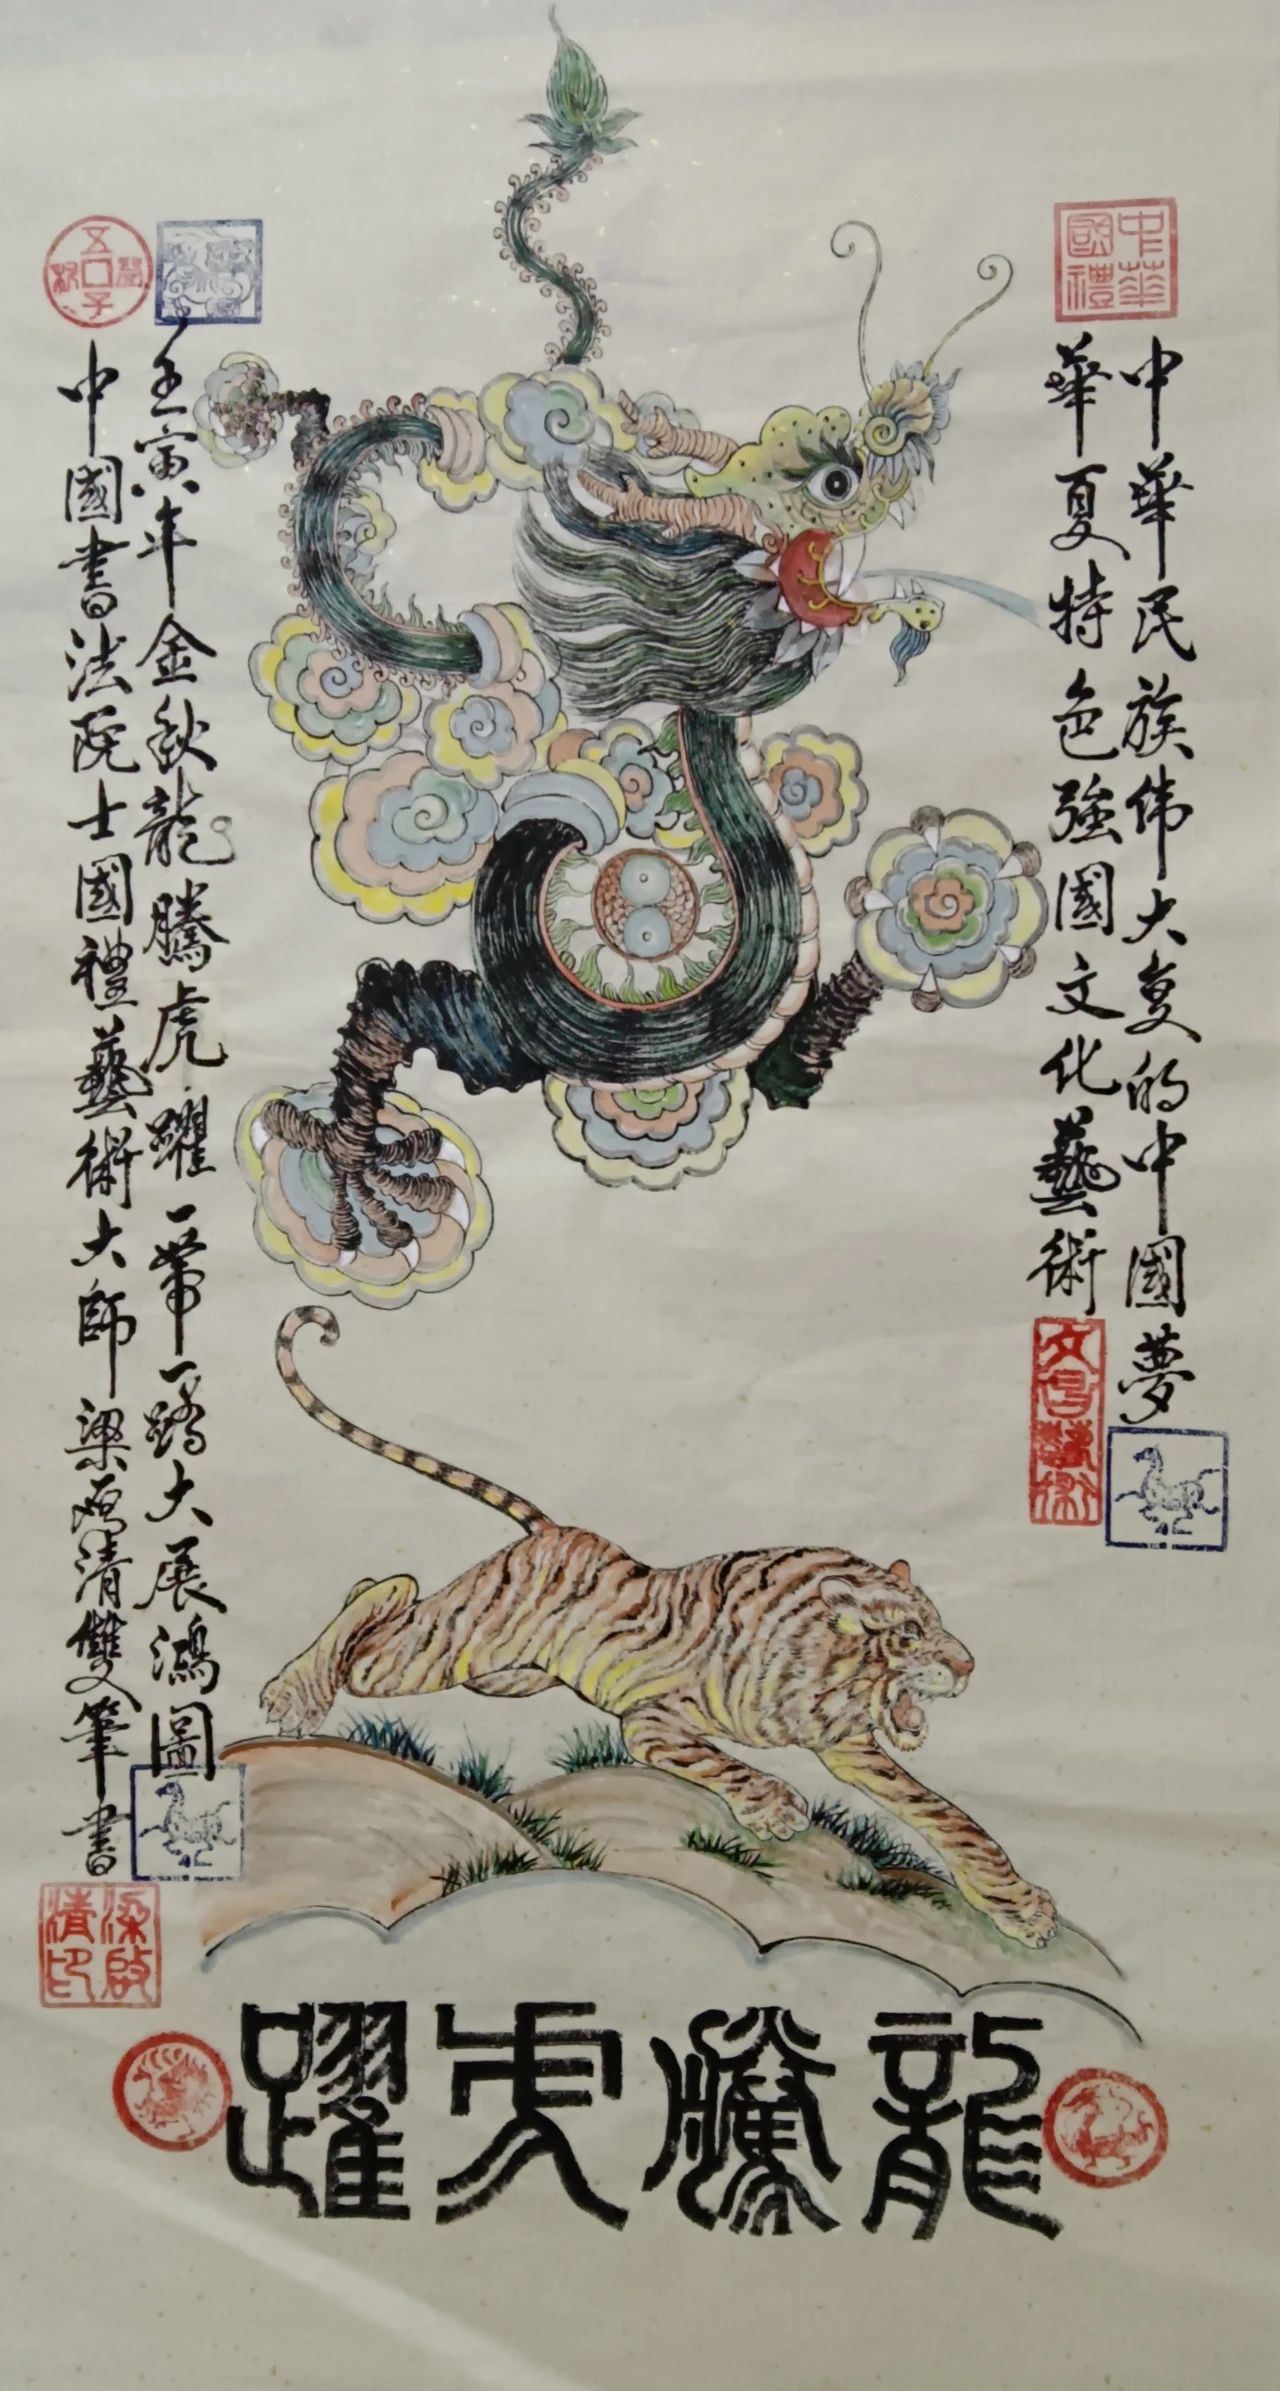 中華國禮
中華民族伟大复的中國夢
華夏特色強國文化藝術
壬寅年金秋龍騰虎躍一带一路大展鴻圖
中國書法院士國禮藝術大師梁啟清雙筆書
梁啟清印
龍騰虎躍